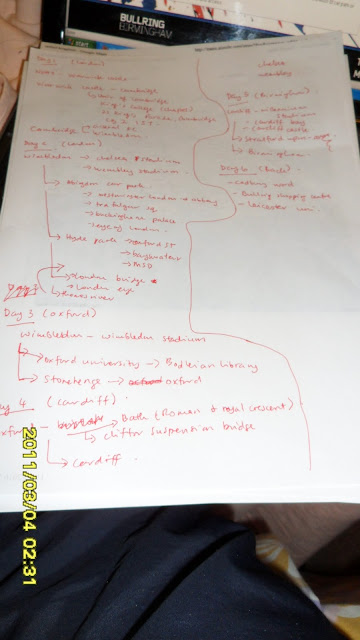 BULLRING
BIRMINGHAM
start
Day 1 (London)
Warwick castle → Cambridge
King's College (chapel)
Cambridge
Wimbledon
Day 2 (London)
Wimbledon → Chelsea stadium
→ Wembley stadium
→ Abingdon car park
→ Westminster London & abbey
→ trafalgar sq
→ buckingham palace
→ eye of London
→ Hyde park → oxford ST
→ bayswater
→ MSD
→ London bridge
→ London eye
→ Thames river
Day 3 (oxford)
Wimbledon - wimbledon stadium
→ oxford university → Bodleian library
→ Stonehenge → oxford
Day 4 (cardiff)
oxford - Bath (Roman & royal crescent)
→ cliffton suspention bridge
→ cardiff.
chelsea
wembley
Day 5 (Birmingham)
cardiff - millennium
stadium
- cardiff bay
- cardiff castle
→ Stratford upon
→ Birmingham
Day 6
- Bullring shopping centre
- Leicester uni.
2011/03/04 02:31